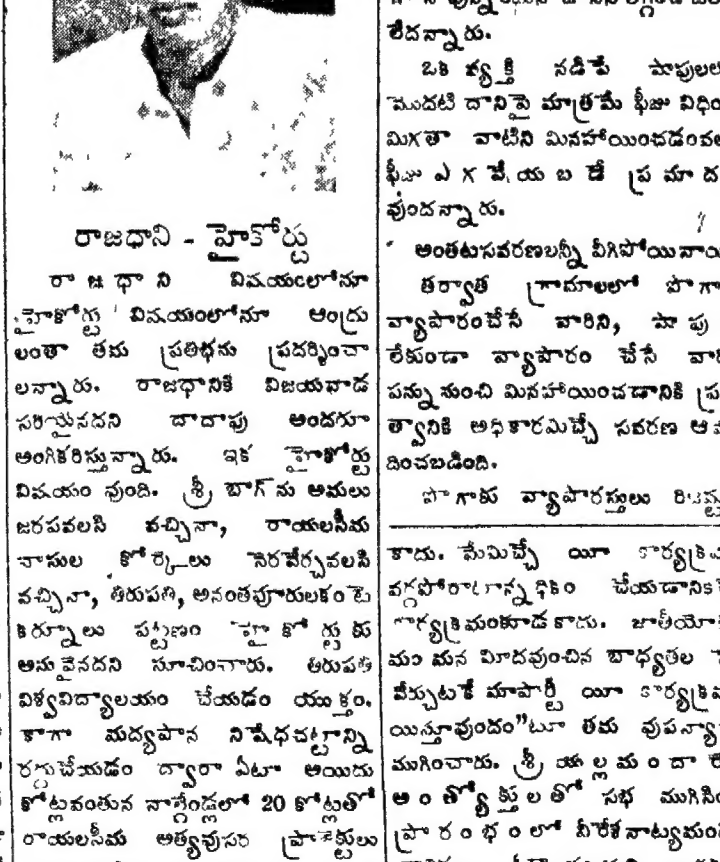 రాజధాని - హైకోర్టు
రాజధాని విషయంలోనూ
హైకోర్టు విషయంలోనూ ఆంధ్రు
లంతా తమ ప్రతిభను ప్రదర్శించా
లన్నారు. రాజధానికి విజయవాడ
సరియైనదని దాదాపు అందరూ
అంగీకరిస్తున్నారు. ఇక హైకోర్టు
విషయం వుంది. శ్రీ బాగ్ ను అమలు
జరపవలసి వచ్చినా, రాయలసీమ
వాసుల కోర్కెలు నెరవేర్చవలసి
వచ్చినా, తిరుపతి, అనంతపూరులకంటె
కర్నూలు పట్టణం హైకోర్టుకు
అనువైనదని సూచించారు. తిరుపతి
విశ్వవిద్యాలయం చేయడం యుక్తం.
కాగా మద్యపాన నిషేధచట్టాన్ని
రద్దుచేయడం ద్వారా ఏటా అయిదు
కోట్లవంతున నాల్గేండ్లలో 20 కోట్లతో
రాయలసీమ అత్యవుసర ప్రాజెక్టులు
లేదన్నారు.
ఒక వ్యక్తి నడిపే షాపులలో
మొదటి దానిపై మాత్రమే ఫీజు
మిగతా వాటిని
ఫీజు ఎగవేయబడే
వుందన్నారు.
అంతటసవరణలన్నీ వీగిపోయినాయి
తర్వాత గ్రామాలలో
వ్యాపారంచేసే వారిని, షాపు
లేకుండా వ్యాపారం చేసే
పన్నునుంచి మినహాయించడానికి
త్వానికి అధికారమిచ్చే సవరణ
దించబడింది.
పొగాకు వ్యాపారస్తులు
కాదు. మేమిచ్చే యీ
చేయడానికి
కార్యక్రమంకూడకాదు.
మం మన మీదవుంచిన బాధ్యతల
మాపార్టీ యీ
యిస్తూవుందం"టూ తమ
ముగించారు. శ్రీ
అంత్యోక్తులతో సభ
ప్రారంభంలో